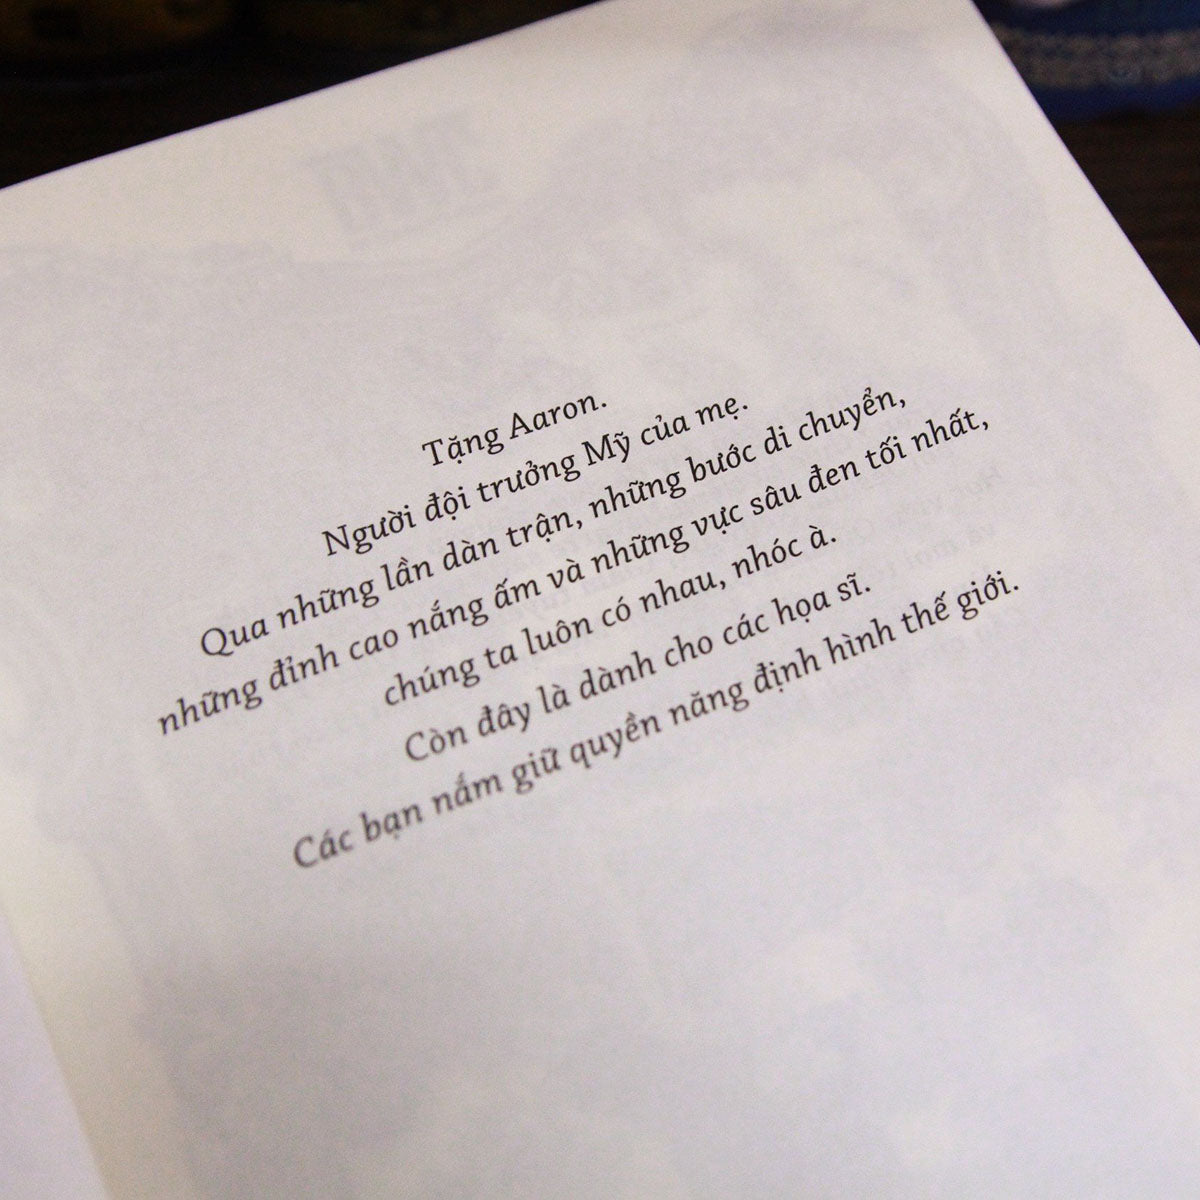 Tặng Aaron.
Người đội trưởng Mỹ của mẹ.
Qua những lần dàn trận, những bước di chuyển,
những đỉnh cao nắng ấm và những vực sâu đen tối nhất,
chúng ta luôn có nhau, nhóc à.
Còn đây là dành cho các họa sĩ.
Các bạn nắm giữ quyền năng định hình thế giới.